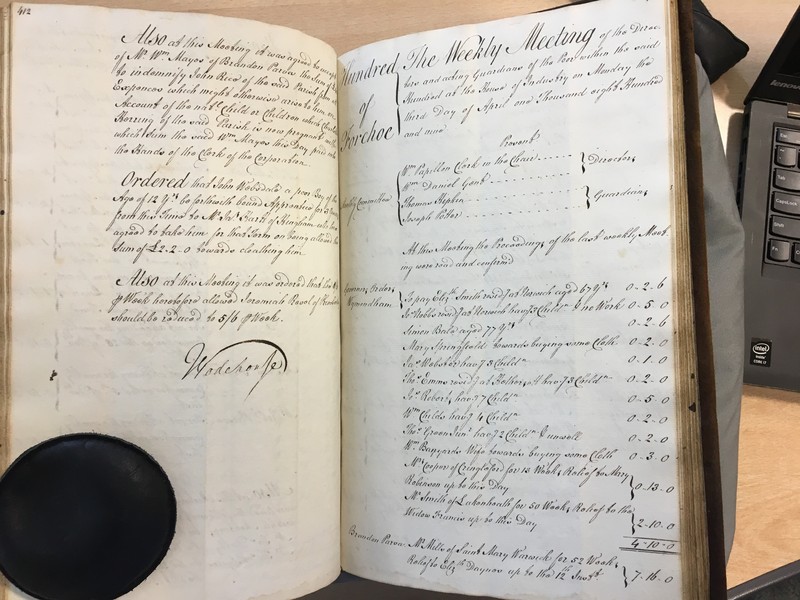 412
Also at this Meeting it was agreed to accept
of Mr. Wm. Mayos of Brandon Parva the Sum of
to indemnify John Reco of the said Parish from
Expences which might otherwise arise to them on
Account of the natl. Child or Children which
of the said Parish is now pregnant with
which Sum the said Wm. Mayos this Day paid into
the Hands of the Clerk of the Corporation
Ordered that John a poor Boy of the
Age of 12 Yrs. be forthwith bound Apprentice for
from this Time to Mr. of Hingham who
agreed to take him for that Term on being allowed the
Sum of £2-2-0 towards cloathing him
Also at this Meeting it was ordered that the
⅌ Week heretofore allowed Jeremiah of
should be reduced to 5/6 ⅌ Week.
Wodehouse
Hundred
of
Forehoe
The Weekly Meeting of the Direc-
tors and acting Guardians of the Poor within the said
Hundred at the House of Industry on Monday the
third Day of April one Thousand eight Hundred
and nine
Present
Wm. Papillon Clerk in the Chair
Wm. Daniel Gent.
Directors
Committee
Thomas
Joseph
Guardians
At this Meeting the Proceedings of the last weekly Meet-
ing were read and confirmd
Orders
Wymondham
To pay Elizth. Smith resids. at Norwich aged 67 Yrs. 0-2-6
Jno. Tubbs resids. at Norwich havg. 5 Childn. & no Work 0-5-0
Simon Bale aged 77 Yrs. 0-2-6
Mary Springfield towards buying some Cloths 0-2-0
Jas. Webster havg. 3 Childn. 0-1-0
Thos. Emms resids. at havg. 3 Childn. 0-2-0
Robert havg. 7 Childn. 0-5-0
Wm. Childs havg. 4 Childn. 0-2-0
Thos. Green Junr. havg. 2 Childn. unwell 0-2-0
Wm. Banyards Wife towards buying some Cloths 0-3-0
Mr. Cooper of Cringleford for 13 Weeks Relief to Mary
Robinson up to this Day 0-13-0
Mr. Smith of Lakenheath for 50 Weeks Relief to the
Widow Francis up to this Day 2-10-0
4-10-0
Brandon Parva Mr. Mills of Saint Mary Warwick for 52 Weeks
Relief to Elizth. up to the 12th. Inst. 7-16-0
lenovo
Tab
CapsLock
Shift
Fn
Ctrl
intel